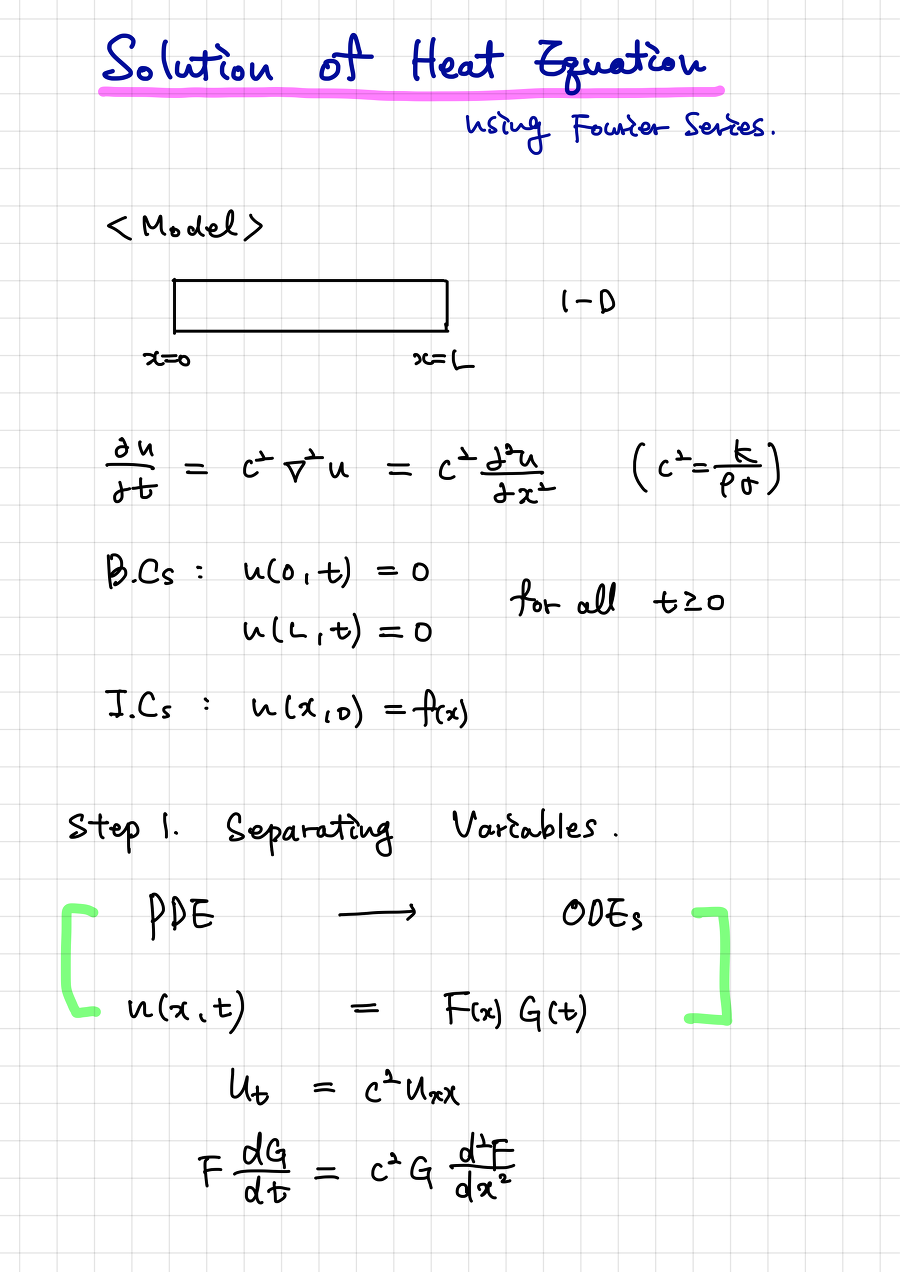 Solution of Heat Equation
using Fourier Series.
<Model>
1-D
x=0 x=L
∂u/∂t = c² ∇² u = c² ∂²u/∂x² (c² = k/ρσ)
B.Cs : u(0,t) = 0
for all t≥0
u(L,t) = 0
I.Cs : u(x,0) = f(x)
Step 1. Separating Variables.
PDE ⟶ ODEs
u(x,t) = F(x) G(t)
u_t = c² u_xx
F dG/dt = c² G d²F/dx²